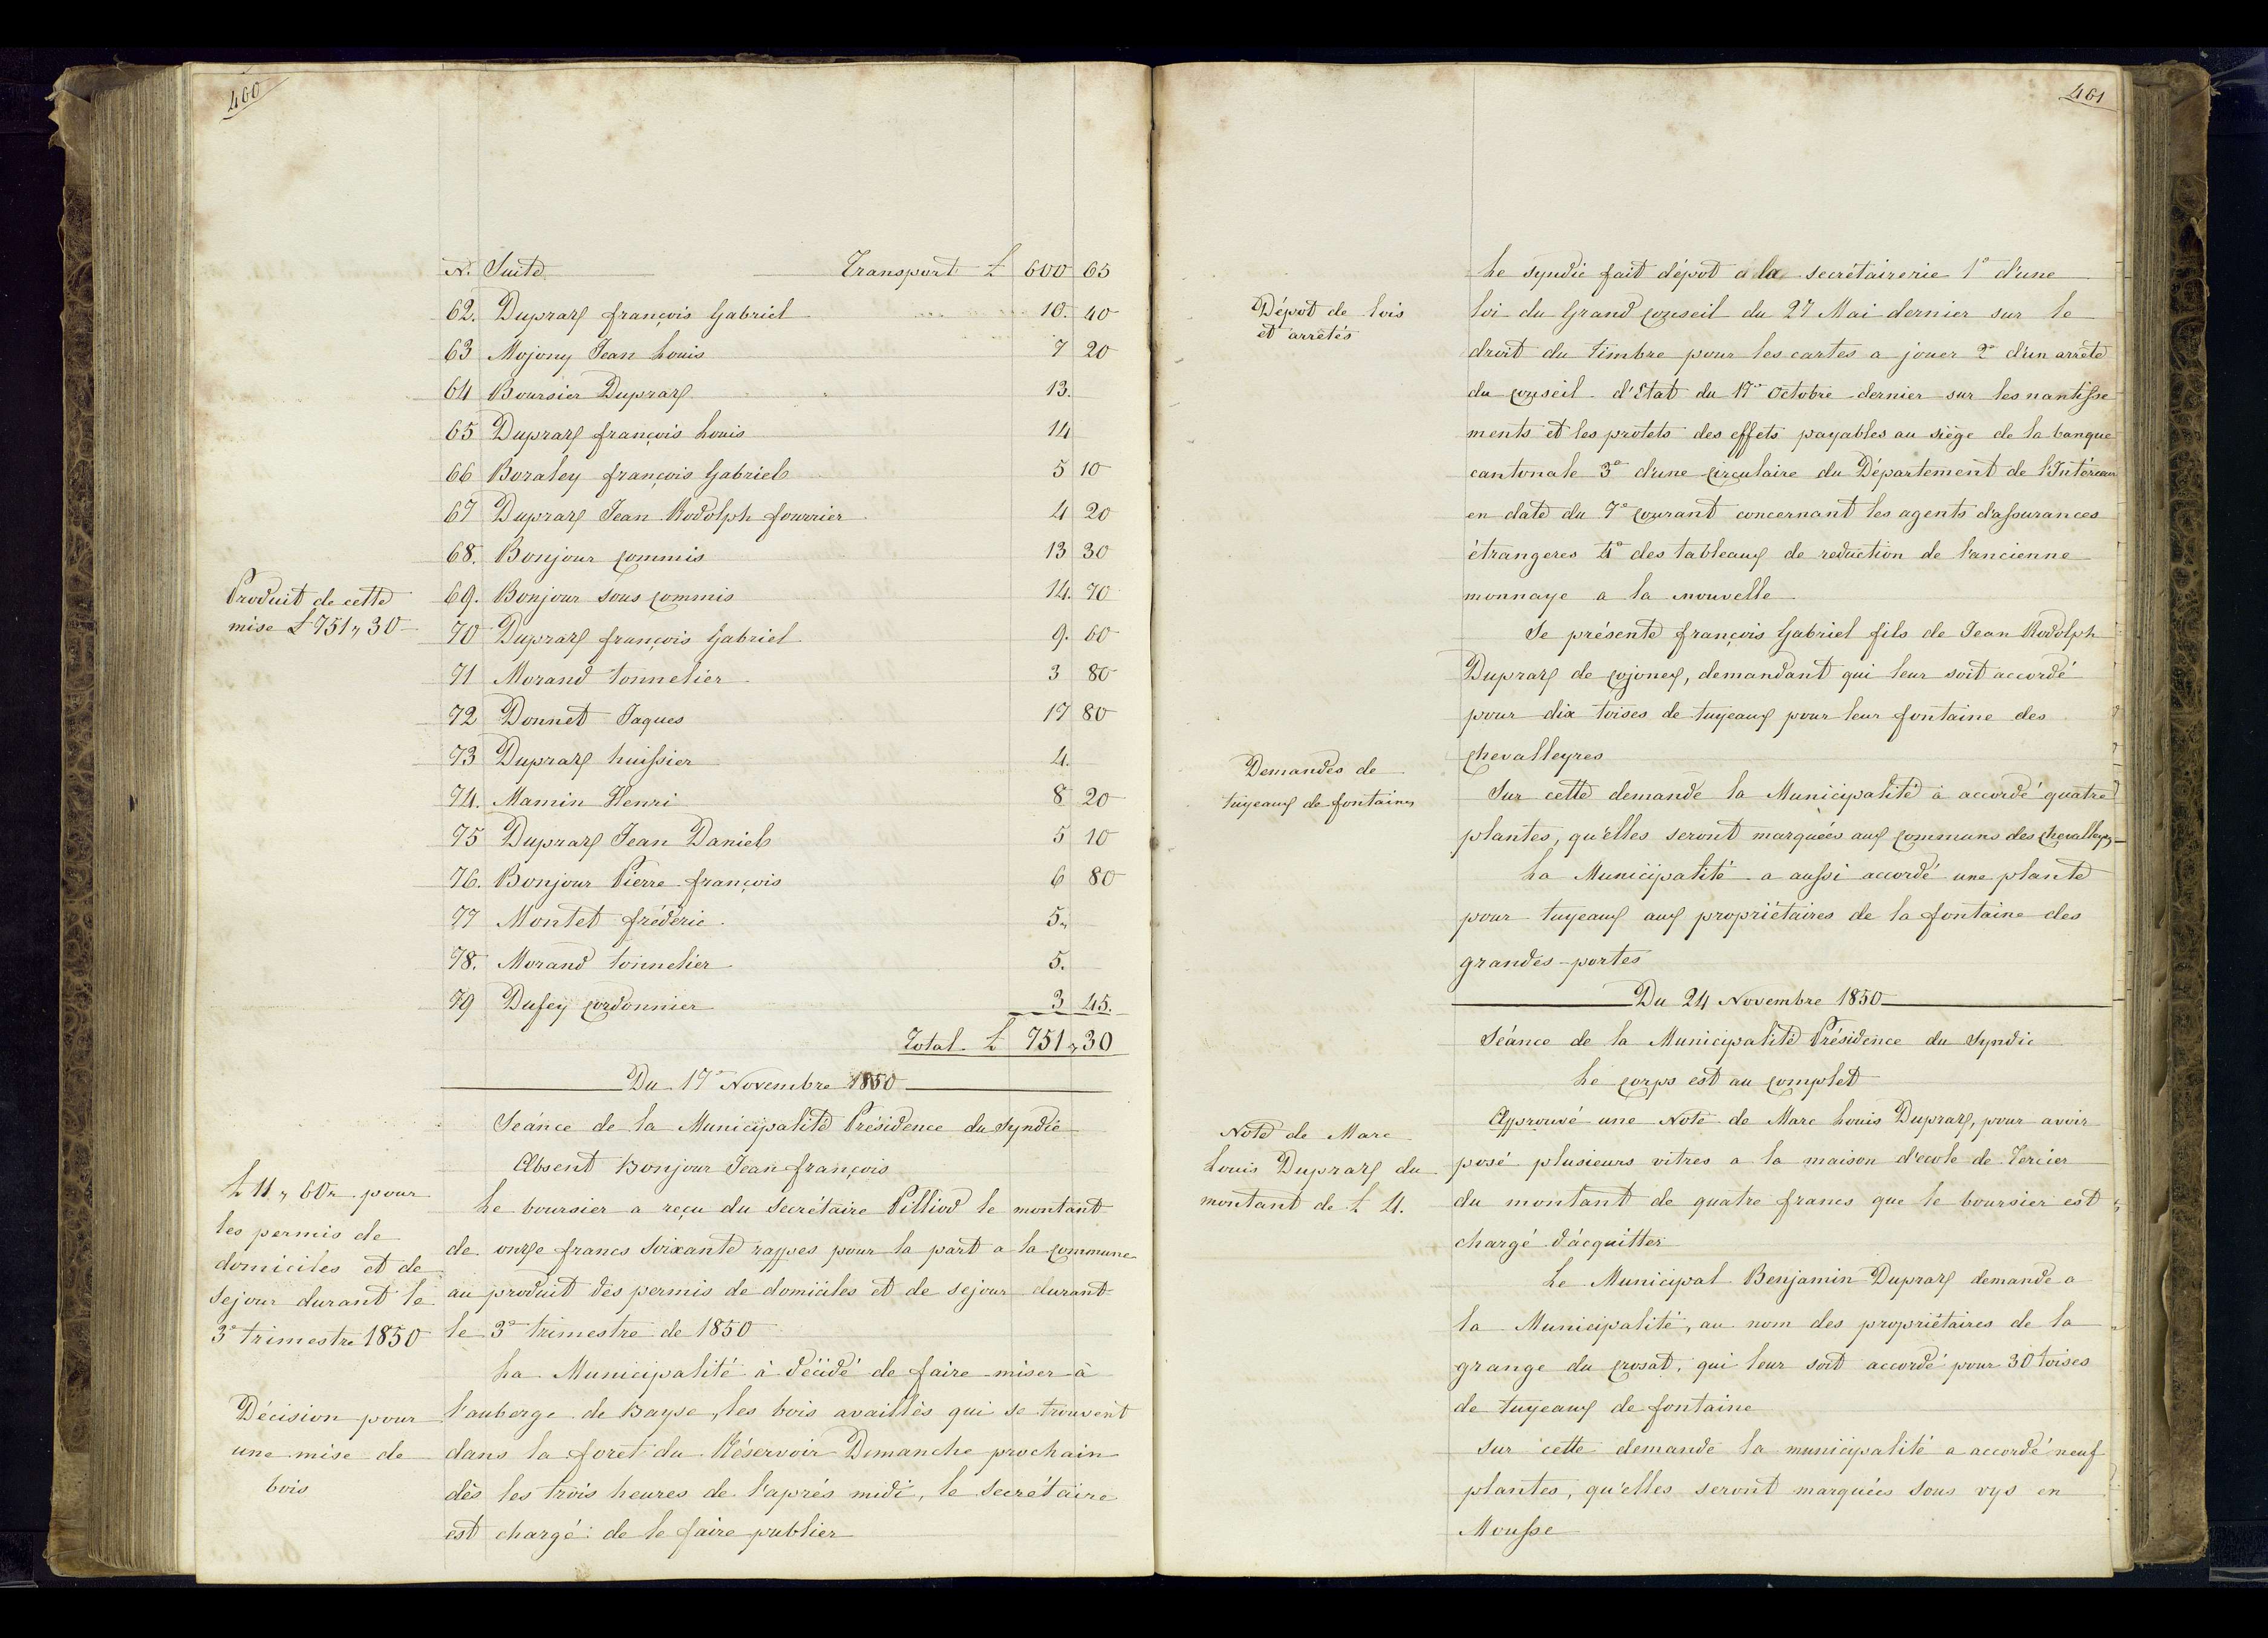 460
N. Suite Transport £ 600 65
62. Duprax françois Gabriel 10. 40
63 Mojony Jean Louis 7 20
64 Boursier Duprax 13.
65 Duprax françois Louis 14
66 Boraley françois Gabriel 5 10
67 Duprax Jean Rodolph fourrier 4 20
68. Bonjour commis 13 30
69. Bonjour sous commis 14. 70
Produit de cette
mise £ 751,, 30
70 Duprax françois Gabriel 9. 60
71 Morand tonnelier 3 80
72 Donnet Jaques 17 80
73 Duprax huissier 4.
74. Mamin Henri 8 20
75 Duprax Jean Daniel 5 10
76. Bonjour Pierre françois 6 80
77 Montet fréderic 5.
78. Morand tonnelier 5.
79 Dufey cordonnier 3 45.
Total £ 751,, 30
Du 17e Novembre 1850
Séance de la Municipalité Présidence du Syndic
Absent Bonjour Jean françois
£ 11,, 60r pour
les permis de
domiciles et de
sejour durant le
3e trimestre 1850
Le boursier a reçu du Secrétaire Pilliod le montant
de onze francs soixante rappes pour la part a la commune
au produit des permis de domiciles et de sejour durant
le 3e trimestre de 1850
Décision pour
une mise de
bois
La Municipalité à décidé de faire miser à
l'auberge de Bayse, les bois availlés qui se trouvent
dans la foret du Réservoir Dimanche prochain
dès les trois heures de l'aprés midi, le Secrétaire
est chargé de le faire publier
461
Dépot de lois
et arrêtés
Le syndic fait dépot a la secrétairerie 1° d'une
loi du Grand conseil du 27 Mai dernier sur le
droit du timbre pour les cartes a jouer 2° d'un arrêté
du conseil d'Etat du 17e Octobre dernier sur les nantisse
ments et les protets des effets payables au siège de la banque
cantonale 3° d'une circulaire du Département de l'Intérieur
en date du 7e courant concernant les agents d'assurances
étrangeres 4° des tableaux de reduction de l'ancienne
monnaye a la nouvelle
Se présente françois Gabriel fils de Jean Rodolph
Duprax de cojonex, demandant qui leur soit accordé
pour dix toises de tuyeaux pour leur fontaine des
chevalleyres
Demandes de
tuyeaux de fontaines
Sur cette demande la Municipalité à accordé quatre
plantes, qu'elles seront marquées aux communs des chevalleyres
La Municipalité a aussi accordé une plante
pour tuyeaux aux propriétaires de la fontaine des
grandes-portes
Du 24 Novembre 1850
Séance de la Municipalité Présidence du Syndic
Le corps est au complet
Note de Marc
Louis Duprax du
montant de £ 4.
Approuvé une Note de Marc Louis Duprax, pour avoir
posé plusieurs vitres a la maison d'ecole de Tercier
du montant de quatre francs que le boursier est
chargé d'acquitter
Le Municipal Benjamin Duprax demande a
la Municipalité, au nom des propriétaires de la
grange du crosat, qui leur soit accordé pour 30 toises
de tuyeaux de fontaine
Sur cette demande la municipalité a accordé neuf
plantes, qu'elles seront marquées sous vys en
Mousse